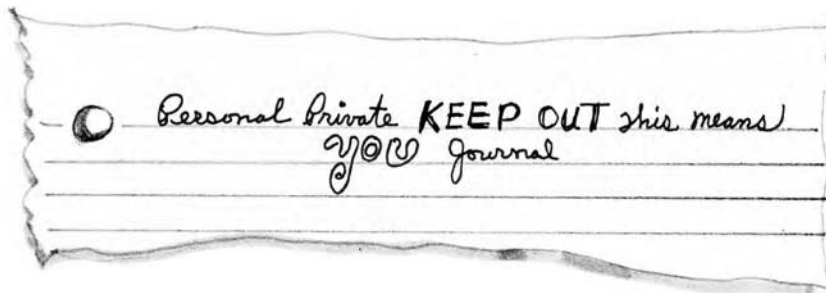 Personal Private KEEP OUT This means
YOU Journal